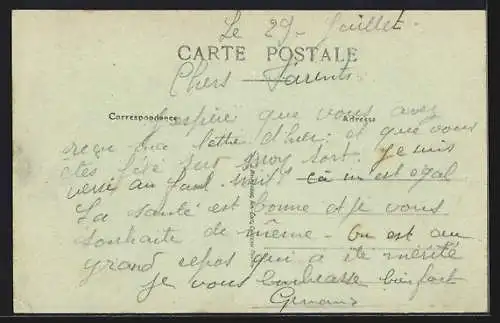 Le 29 Juillet
CARTE POSTALE
Chers Parents
Correspondance
Adresse
J'espère que vous avez
reçu ma lettre d'hier et que vous
êtes fixé sur mon sort. Je suis
versé au ça m'est egal
La santé est bonne et je vous
souhaite de même - On est au
grand repos qui a été mérité
Je vous embrasse bien fort